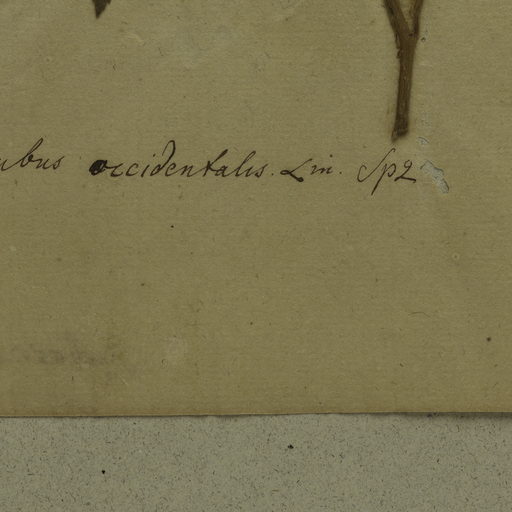 ubus occidentalis. Lin. Sp2